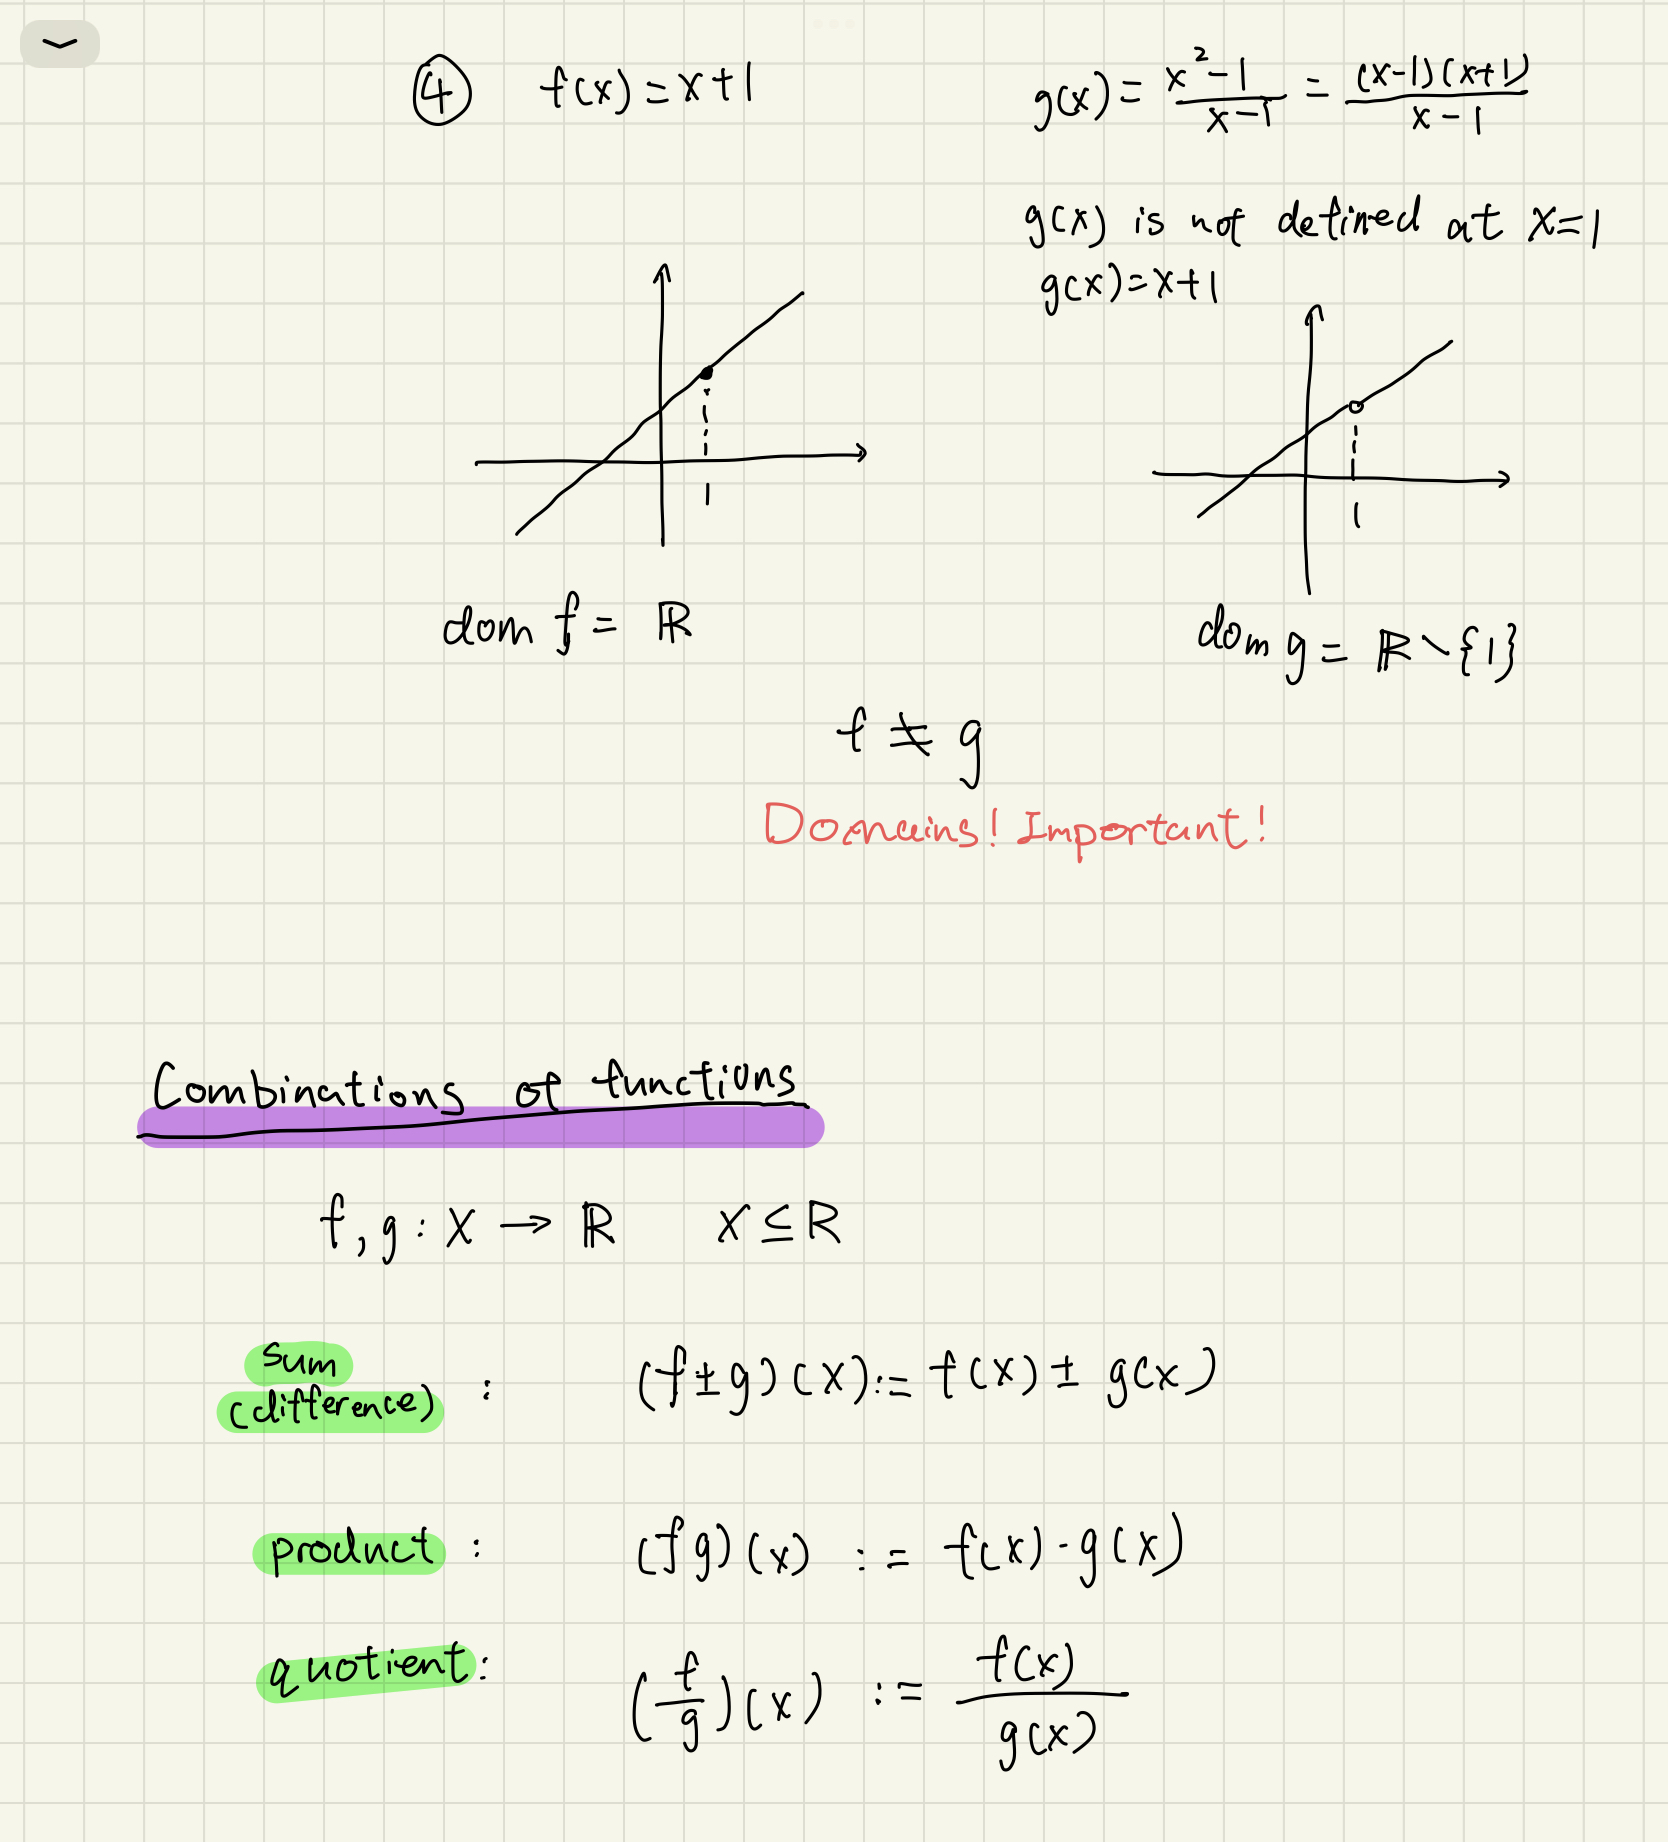 ④ f(x) = x+1
g(x) = x²-1 / x-1 = (x-1)(x+1) / x-1
g(x) is not defined at x=1
g(x) = x+1
1
1
dom f = ℝ
dom g = ℝ∖{1}
f ≠ g
Domains! Important!
Combinations of functions
f, g : X → ℝ X ⊆ ℝ
sum
(difference) : (f±g)(x) := f(x) ± g(x)
product : (fg)(x) := f(x)·g(x)
quotient : (f/g)(x) := f(x) / g(x)